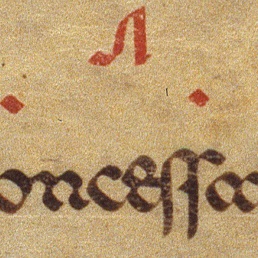 A
oncessa